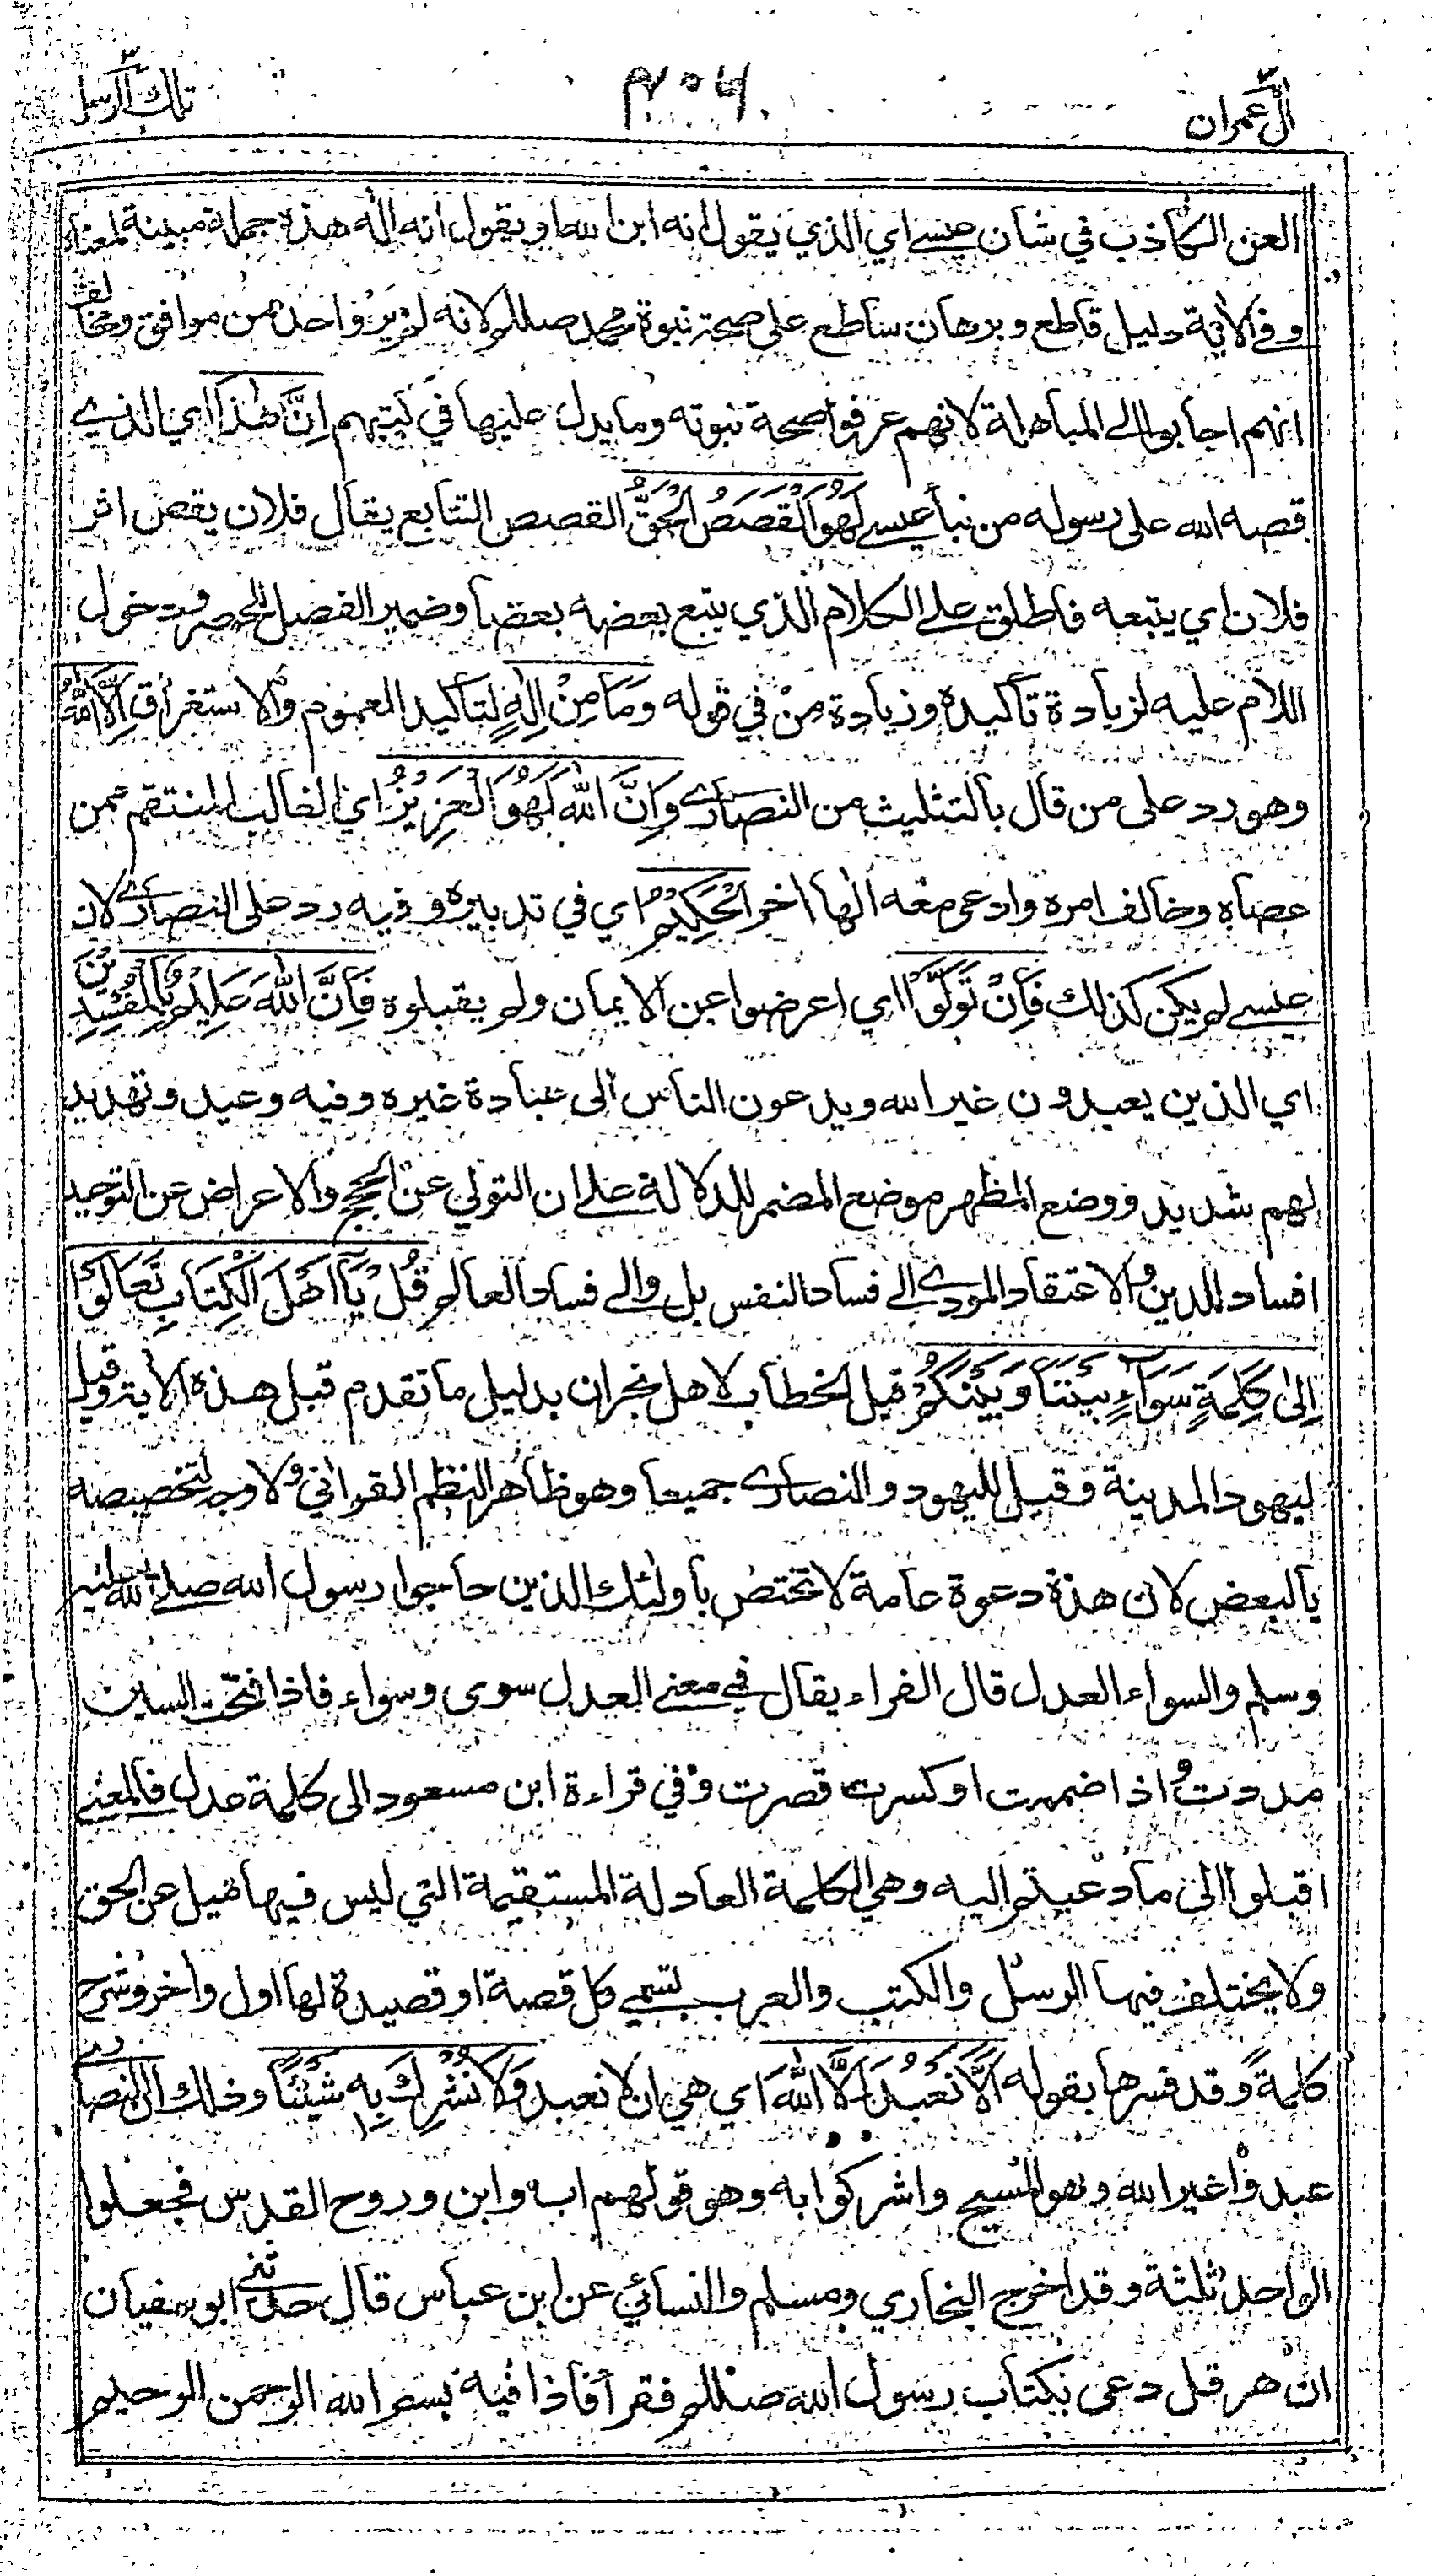 آل عمران
تلك الرسل
العن الكاذب في شان عيسے اي الذي يقول انه ابن الله او يقول انه اله هذه جملة مبينة لمعناه
وفي الأية دليل قاطع وبرهان ساطع على صحة نبوة محمد صللم لانه لم يرو احد من موافق ومخالف
انهم اجابوا الے المباهلة لانهم عرفوا صحة نبوته وما يدل عليها في كتبهم اِنَّ هٰذَا اي الذي
قصه الله على رسوله من نبأ عيسے لَهُوَ الْقَصَصُ الْحَقُّ القصص التتابع يقال فلان يقص اثر
فلان اي يتبعه فاطلق علے الكلام الذي يتبع بعضه بعضا وضمير الفصل للحصر ودخول
اللام عليه لزيادة تأكيده وزيادة مِنْ في قوله وَمَا مِنْ اِلٰهٍ لتأكيد العموم والاستغراق اِلَّا اللهُ
وهو رد على من قال بالتثليث من النصارے وَاِنَّ اللهَ لَهُوَ الْعَزِيْزُ اي الغالب المنتقم ممن
عصاه وخالف امره وادعى معه الٰها اخر الْحَكِيْمُ اي في تدبيره وفيه رد على النصارے لان
عيسے لم يكن كذلك فَاِنْ تَوَلَّوْا اي اعرضوا عن الايمان ولم يقبلوه فَاِنَّ اللهَ عَلِيْمٌ بِالْمُفْسِدِيْنَ
اي الذين يعبدون غير الله ويدعون الناس الى عبادة غيره وفيه وعيد وتهديد
لهم شديد ووضع المظهر موضع المضمر للدلالة علے ان التولي عن الحجج والاعراض عن التوحيد
افساد للدين والاعتقاد المودي الے فساد النفس بل والے فساد العالم قُلْ يَآ اَهْلَ الْكِتَابِ تَعَالَوْا
اِلٰى كَلِمَةٍ سَوَآءٍ بَيْنَنَا وَبَيْنَكُمْ قيل الخطاب لاهل نجران بدليل ما تقدم قبل هذه الاية وقيل
ليهود المدينة وقيل لليهود والنصارى جميعا وهو ظاهر النظم القراني ولا وجه لتخصيصه
بالبعض لان هذه دعوة عامة لا تختص باولئك الذين حاجوا رسول الله صلے الله عليه
وسلم والسواء العدل قال الفراء يقال في معنے العدل سوى وسواء فاذا فتحت السين
مددت واذا ضممت او كسرت قصرت وفي قراءة ابن مسعود الى كلمة عدل فالمعنے
اقبلوا الى ما دعيتم اليه وهي الكلمة العادلة المستقيمة التي ليس فيها ميل عن الحق
ولا يختلف فيها الرسل والكتب والعرب تسمي كل قصة او قصيدة لها اول واخر وشرح
كلمة وقد فسرها بقوله اَلَّا نَعْبُدَ اِلَّا اللهَ اي هي ان لا نعبد وَلَا نُشْرِكَ بِهٖ شَيْئًا وذلك ان النصارى
عبدوا غير الله وهو المسيح واشركوا به وهو قولهم اب وابن وروح القدس فجعلوا
الواحد ثلثة وقد اخرج البخاري ومسلم والنسائي عن ابن عباس قال حدثنے ابو سفيان
ان هرقل دعى بكتاب رسول الله صللم فقرأ فاذا فيه بسم الله الرحمن الرحيم